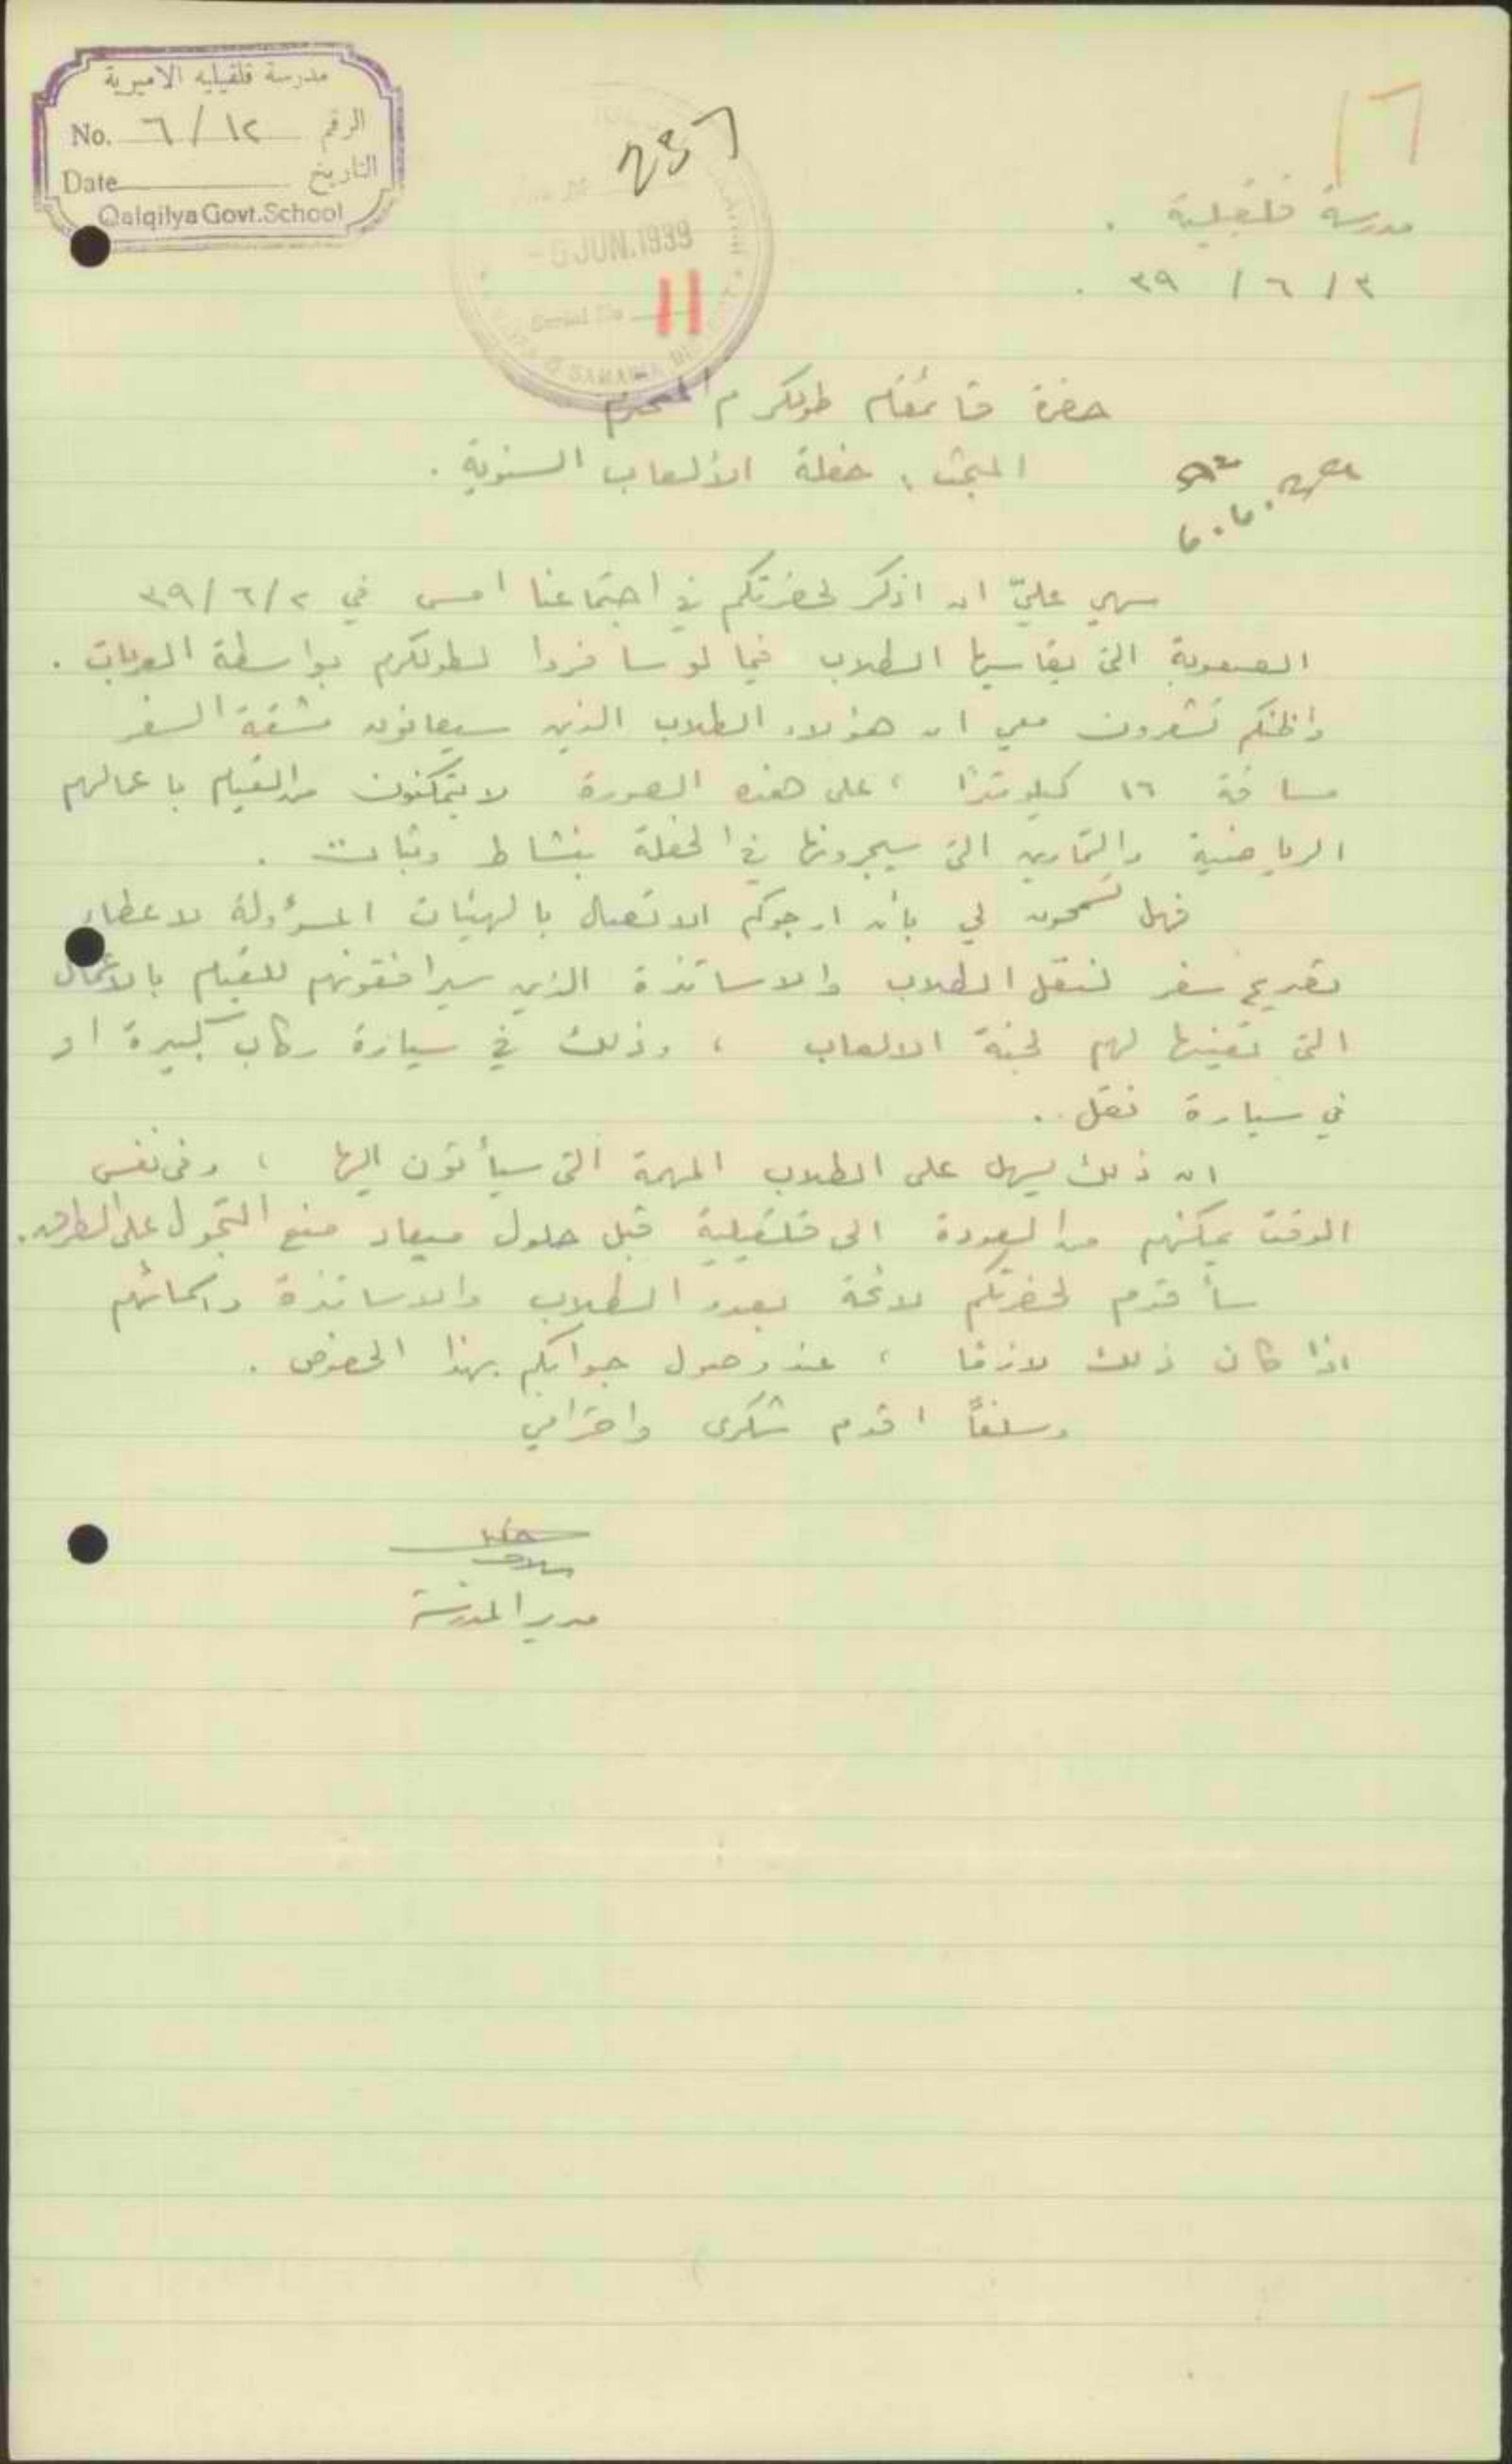 مدرسة قلقيليه الاميرية
No. ٦/١٢ الرقم
Date التاريخ
Qalqilya Govt. School
-5 JUN. 1939
Serial No 11
١٦
مدرسة قلقيلية .
٣ / ٦ / ٣٩ .
حضرة قائمقام طولكرم المحترم
المبحث : حفلة الألعاب السنوية .
سهي عليّ ان اذكر لحضرتكم في اجتماعنا امس في ٢/٦/٣٩
الصعوبة التي يقاسيها الطلاب فيما لو سافروا لطولكرم بواسطة العربات .
واظنكم تشعرون معي ان هؤلاء الطلاب الذين سيعانون مشقة السفر
مسافة ١٦ كيلومترًا ، على هذه الصورة لا يتمكنون من القيام باعمالهم
الرياضية والتمارين التي سيجرونها في الحفلة بنشاط وثبات .
فهل تسمحون لي بأن ارجوكم الاتصال بالهيئات المسؤولة لاعطاء
تصريح سفر لنقل الطلاب والاساتذة الذين سيرافقونهم للقيام بالاعمال
التي تعينها لهم لجنة الالعاب ، وذلك في سيارة ركاب كبيرة او
في سيارة نقل ..
ان ذلك يسهل على الطلاب المهمة التي سيأتون اليها ، وفي نفس
الوقت يمكنهم من العودة الى قلقيلية قبل حلول ميعاد منع التجول على الطرق .
سأقدم لحضرتكم لائحة بعدد الطلاب والاساتذة واسمائهم
اذا كان ذلك لازما ، عند وصول جوابكم بهذا الخصوص .
وسلفاً اقدم شكري واحترامي
مدير المدرسة